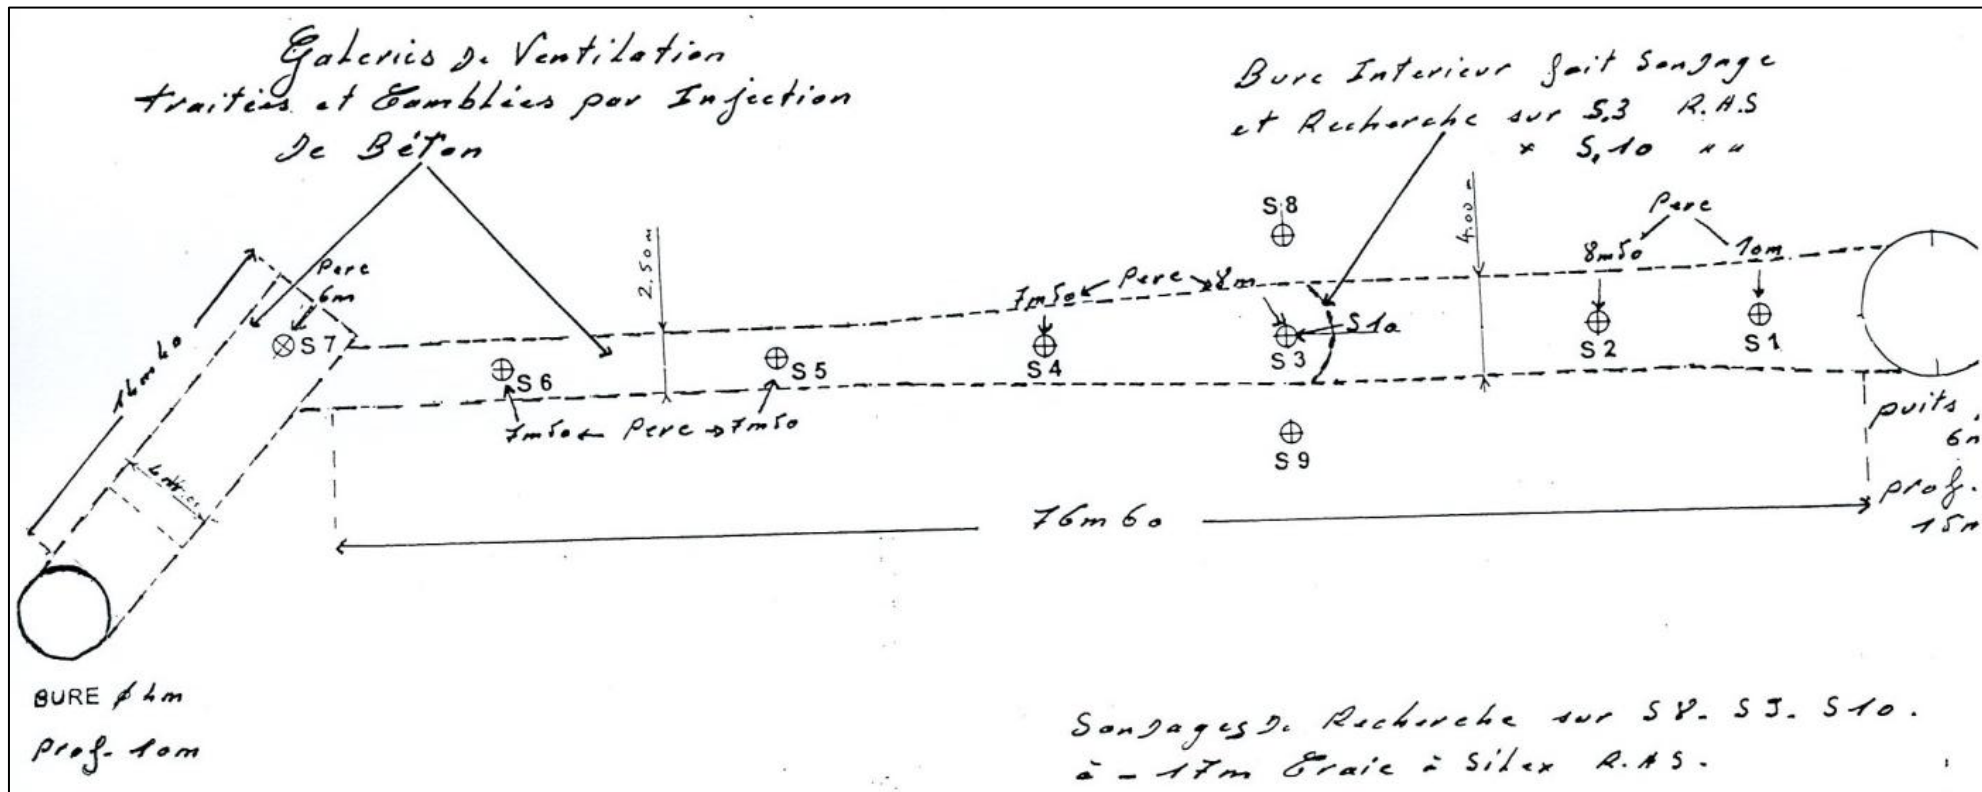 Galeries De Ventilation
traitées et Comblées par Injection
De Béton
Bure Interieur fait Sondage
et Recherche sur S.3 R.A.S
" S.10 " "
S 8
4.00
Perc
8m50
10m
2.50m
Perc
6m
7m50 Perc 8m
S 7
S 10
S 6
S 5
S 4
S 3
S 2
S 1
14m40
7m50 Perc 7m50
S 9
puits
prof.
76m60
BURE ϕ 4m
prof. 10m
Sondages De Recherche sur S8. S3. S10.
à - 17m Craie à Silex R.A.S.